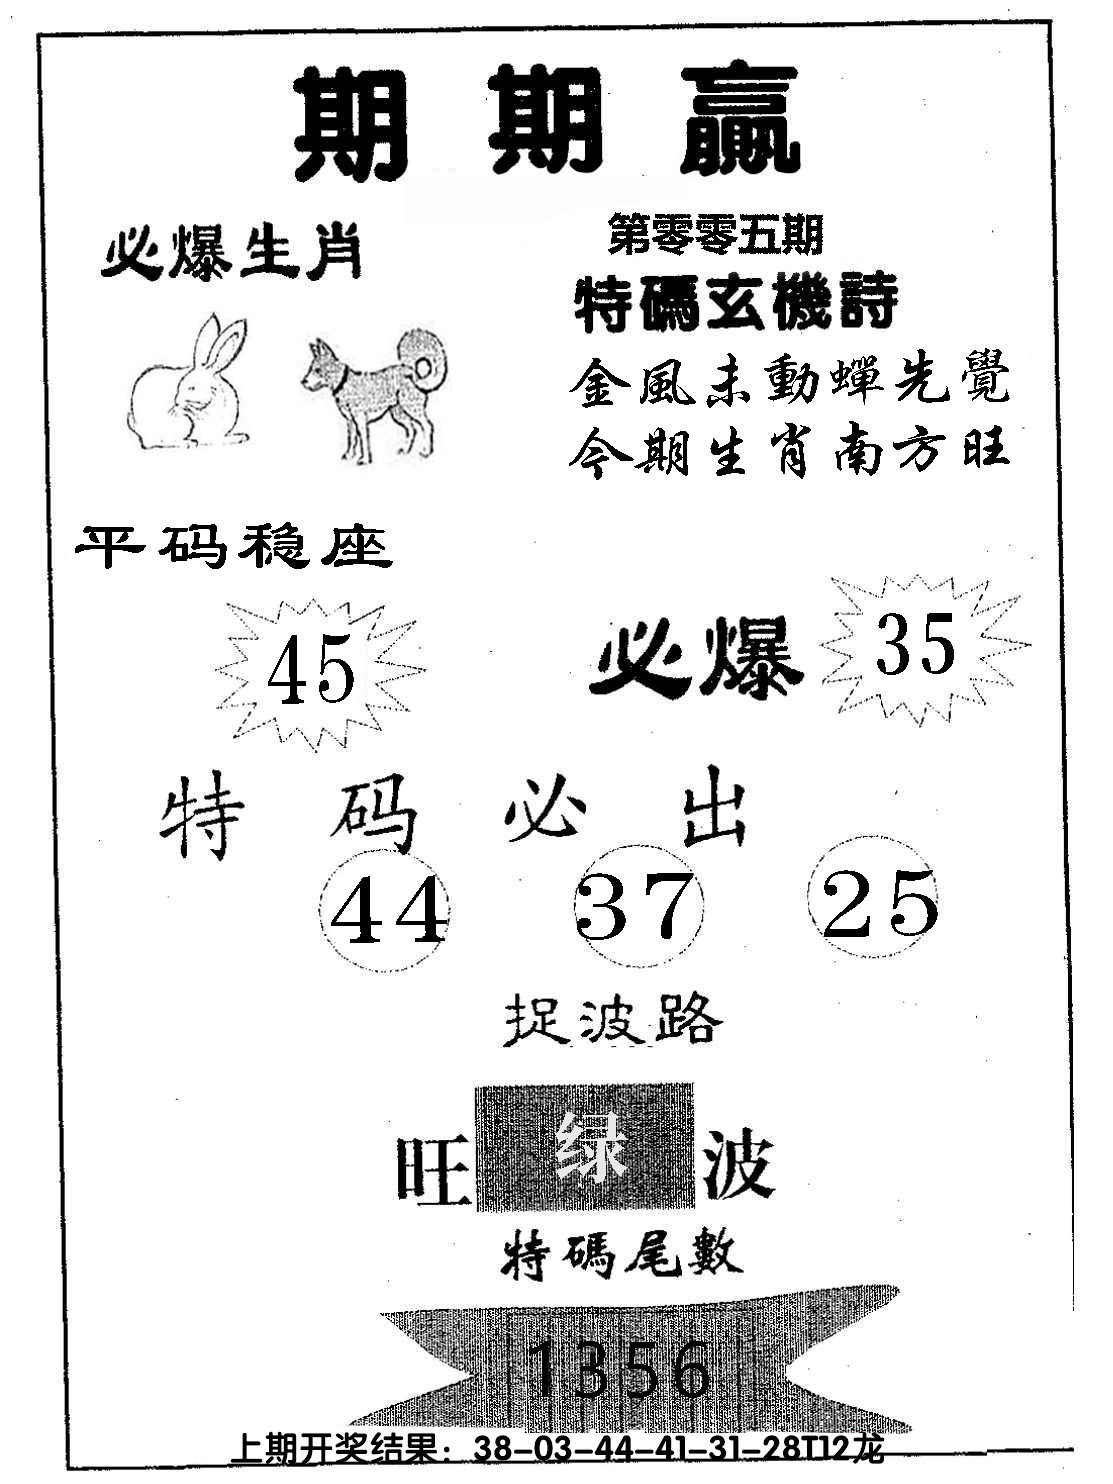 期期贏
必爆生肖
第零零五期
特碼玄機詩
金風未動蟬先覺
今期生肖南方旺
平码稳座
45
必爆 35
特码必出
44 37 25
捉波路
旺 绿 波
特碼尾數
1356
上期开奖结果：38-03-44-41-31-28T12龙